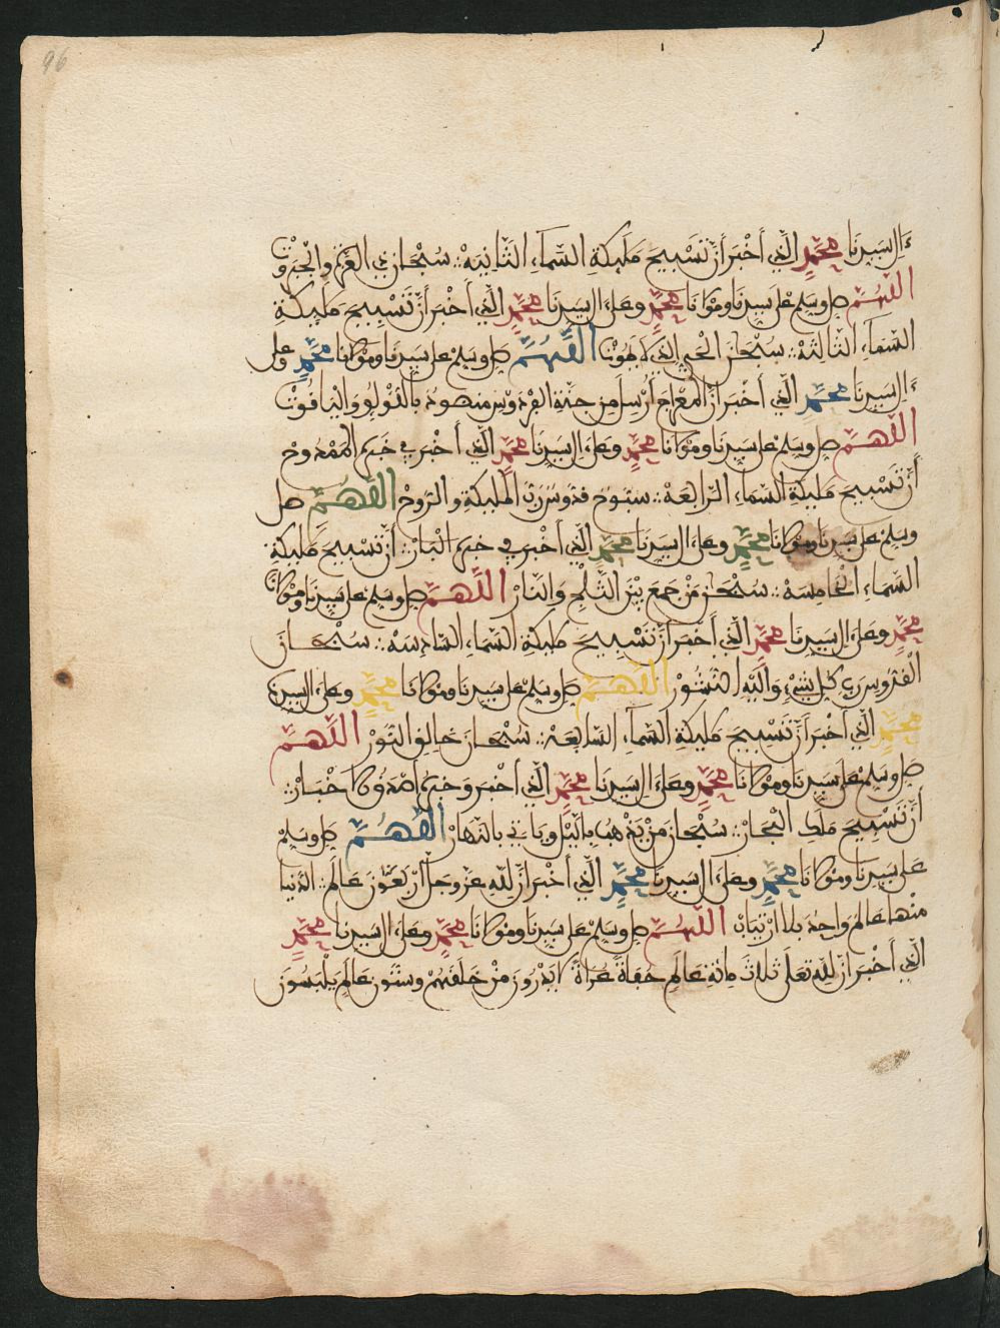 96
ءَالِ سَيِّدِنَا مُحَمَّدٍ الَّذِي أَخْبَرَ أَنَّ تَسْبِيحَ مَلَيِكَةِ السَّمَاءِ الثَّانِيَةْ: سُبْحَانَ ذِي الْعِزَّةِ وَالْجَبَرُوتْ
اللَّهُمَّ صَلِّ وَسَلِّمْ عَلَى سَيِّدِنَا وَمَوْلَانَا مُحَمَّدٍ وَعَلَى ءَالِ سَيِّدِنَا مُحَمَّدٍ الَّذِي أَخْبَرَ أَنَّ تَسْبِيحَ مَلَيِكَةِ
السَّمَاءِ الثَّالِثَةْ: سُبْحَانَ الْحَيِّ الَّذِي لَا يَمُوتْ اللَّهُمَّ صَلِّ وَسَلِّمْ عَلَى سَيِّدِنَا وَمَوْلَانَا مُحَمَّدٍ وَعَلَى
ءَالِ سَيِّدِنَا مُحَمَّدٍ الَّذِي أَخْبَرَ أَنَّ الْمِعْرَاجَ أُرْسِلَ مِن جَنَّةِ الْفِرْدَوْسِ مَنْضُودْ بِاللُّولُؤِ وَالْيَاقُوتْ
اللَّهُمَّ صَلِّ وَسَلِّمْ عَلَى سَيِّدِنَا وَمَوْلَانَا مُحَمَّدٍ وَعَلَى ءَالِ سَيِّدِنَا مُحَمَّدٍ الَّذِي أَخْبَرَ فِي خَبَرِهِ الْمَمْدُوحْ
أَنَّ تَسْبِيحَ مَلَيِكَةِ السَّمَاءِ الرَّابِعَةْ: سُبُّوحٌ قُدُّوسٌ رَبُّ الْمَلَيِكَةِ وَالرُّوحْ اللَّهُمَّ صَلِّ
وَسَلِّمْ عَلَى سَيِّدِنَا وَمَوْلَانَا مُحَمَّدٍ وَعَلَى ءَالِ سَيِّدِنَا مُحَمَّدٍ الَّذِي أَخْبَرَ فِي خَبَرِهِ الْبَارّْ: أَنَّ تَسْبِيحَ مَلَيِكَةِ
السَّمَاءِ الْخَامِسَةْ: سُبْحَانَ مَنْ جَمَعَ بَيْنَ الثَّلْجِ وَالنَّارْ اللَّهُمَّ صَلِّ وَسَلِّمْ عَلَى سَيِّدِنَا وَمَوْلَانَا
مُحَمَّدٍ وَعَلَى ءَالِ سَيِّدِنَا مُحَمَّدٍ الَّذِي أَخْبَرَ أَنَّ تَسْبِيحَ مَلَيِكَةِ السَّمَاءِ السَّادِسَةْ: سُبْحَانَ
الْقُدُّوسِ رَبِّ كُلِّ شَيْءٍ وَإِلَيْهِ النُّشُورْ اللَّهُمَّ صَلِّ وَسَلِّمْ عَلَى سَيِّدِنَا وَمَوْلَانَا مُحَمَّدٍ وَعَلَى ءَالِ سَيِّدِنَا
مُحَمَّدٍ الَّذِي أَخْبَرَ أَنَّ تَسْبِيحَ مَلَيِكَةِ السَّمَاءِ السَّابِعَةْ: سُبْحَانَ خَالِقِ النُّورْ اللَّهُمَّ
صَلِّ وَسَلِّمْ عَلَى سَيِّدِنَا وَمَوْلَانَا مُحَمَّدٍ وَعَلَى ءَالِ سَيِّدِنَا مُحَمَّدٍ الَّذِي أَخْبَرَ وَخَبَرُهُ أَصْدَقُ الْأَخْبَارْ:
أَنَّ تَسْبِيحَ مَلَكِ الْبِحَارْ: سُبْحَانَ مَنْ يَذْهَبُ بِاللَّيْلِ وَيَاتِي بِالنَّهَارْ اللَّهُمَّ صَلِّ وَسَلِّمْ
عَلَى سَيِّدِنَا وَمَوْلَانَا مُحَمَّدٍ وَعَلَى ءَالِ سَيِّدِنَا مُحَمَّدٍ الَّذِي أَخْبَرَ أَنَّ لِلَّهِ عَزَّ وَجَلَّ أَرْبَعُونَ عَالَمْ: الدُّنْيَا
مِنْهَا عَالَمٌ وَاحِدْ بِلَا ارْتِيَابْ اللَّهُمَّ صَلِّ وَسَلِّمْ عَلَى سَيِّدِنَا وَمَوْلَانَا مُحَمَّدٍ وَعَلَى ءَالِ سَيِّدِنَا مُحَمَّدٍ
الَّذِي أَخْبَرَ أَنَّ لِلَّهِ تَعَلَى ثَلَاثَ مِائَةِ عَالَمٍ حُفَاةً عُرَاةً لَا يَدْرُونَ مَنْ خَلَقَهُمْ وَسِتُّونَ عَالَمَ يَلْبَسُونَ